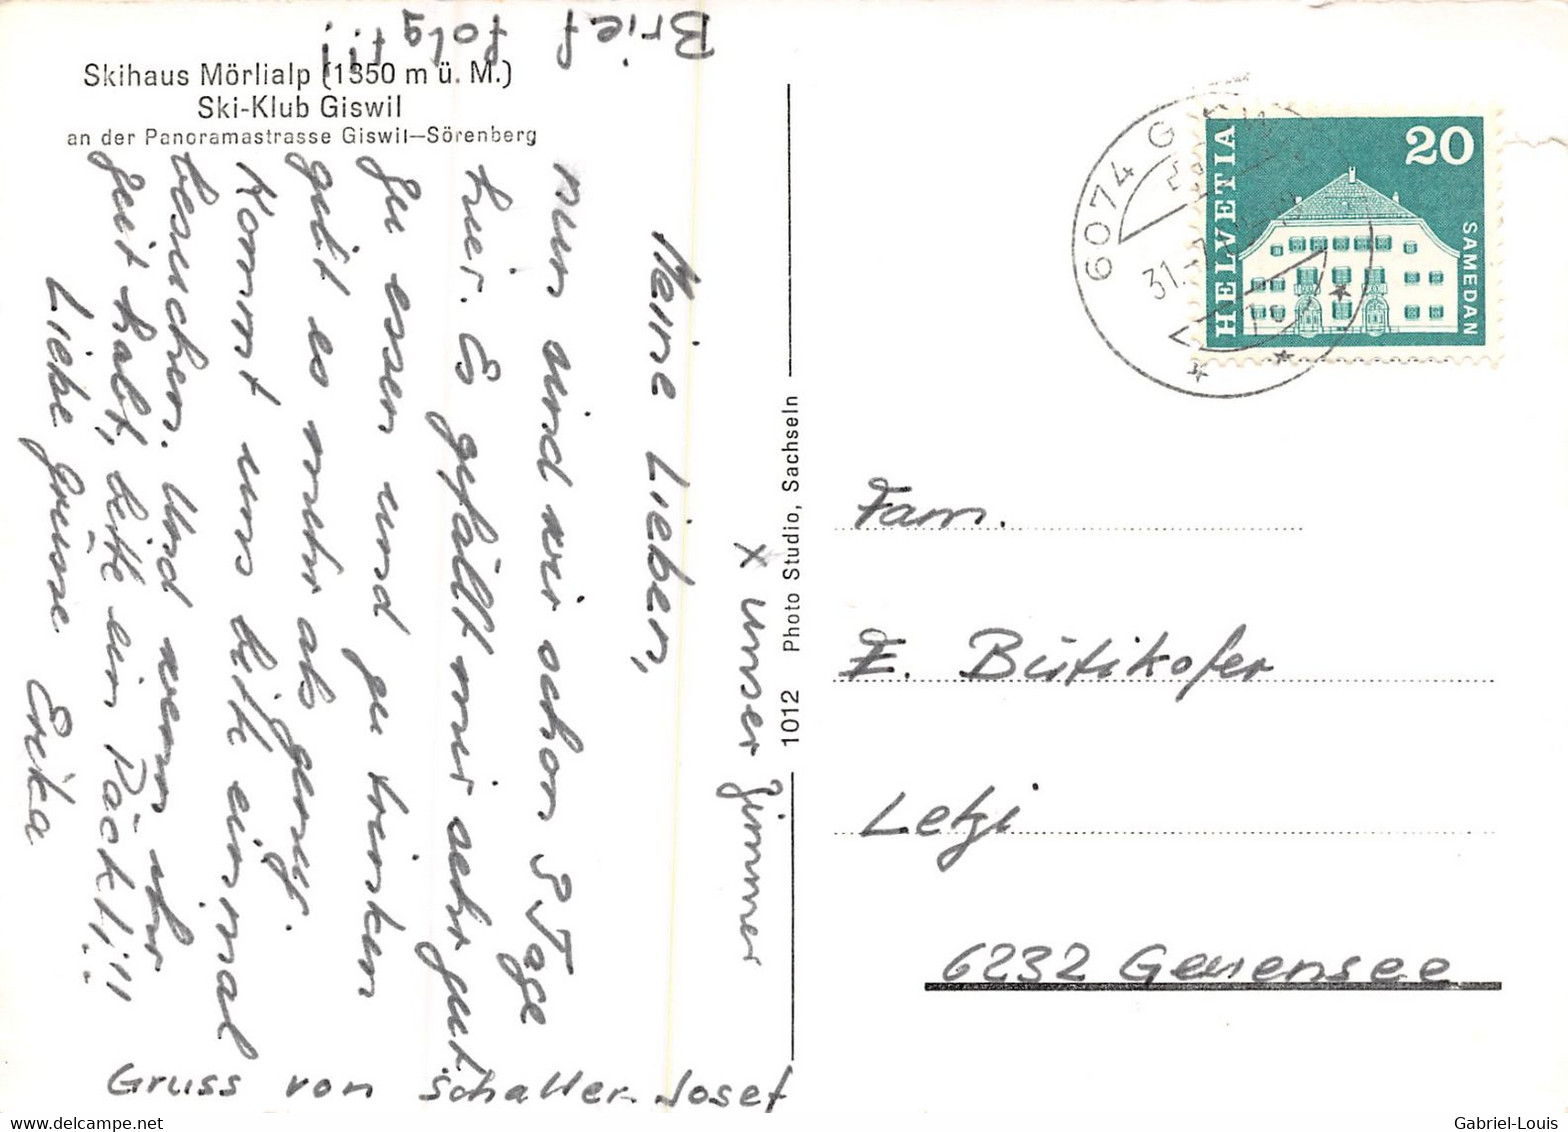 Skihaus Mörlialp (1350 m ü. M.)
Ski-Klub Giswil
an der Panoramastrasse Giswil—Sörenberg
Brief folgt!!
Meine Lieben,
nun sind wir schon 3 Tage
hier. Es gefällt mir sehr gut.
Zu essen und zu trinken
gibt es mehr als genug.
Kommt uns bitte einmal
besuchen. Und wenn ihr
Zeit habt, bitte ein Päckli!!!
Liebe Grüsse Erika
Gruss von Schaller Josef
x unser Zimmer
1012 Photo Studio, Sachseln
6074 G
31.
HELVETIA
20
SAMEDAN
Fam.
E. Bütikofer
Letzi
6232 Geuensee
www.delcampe.net
Gabriel-Louis